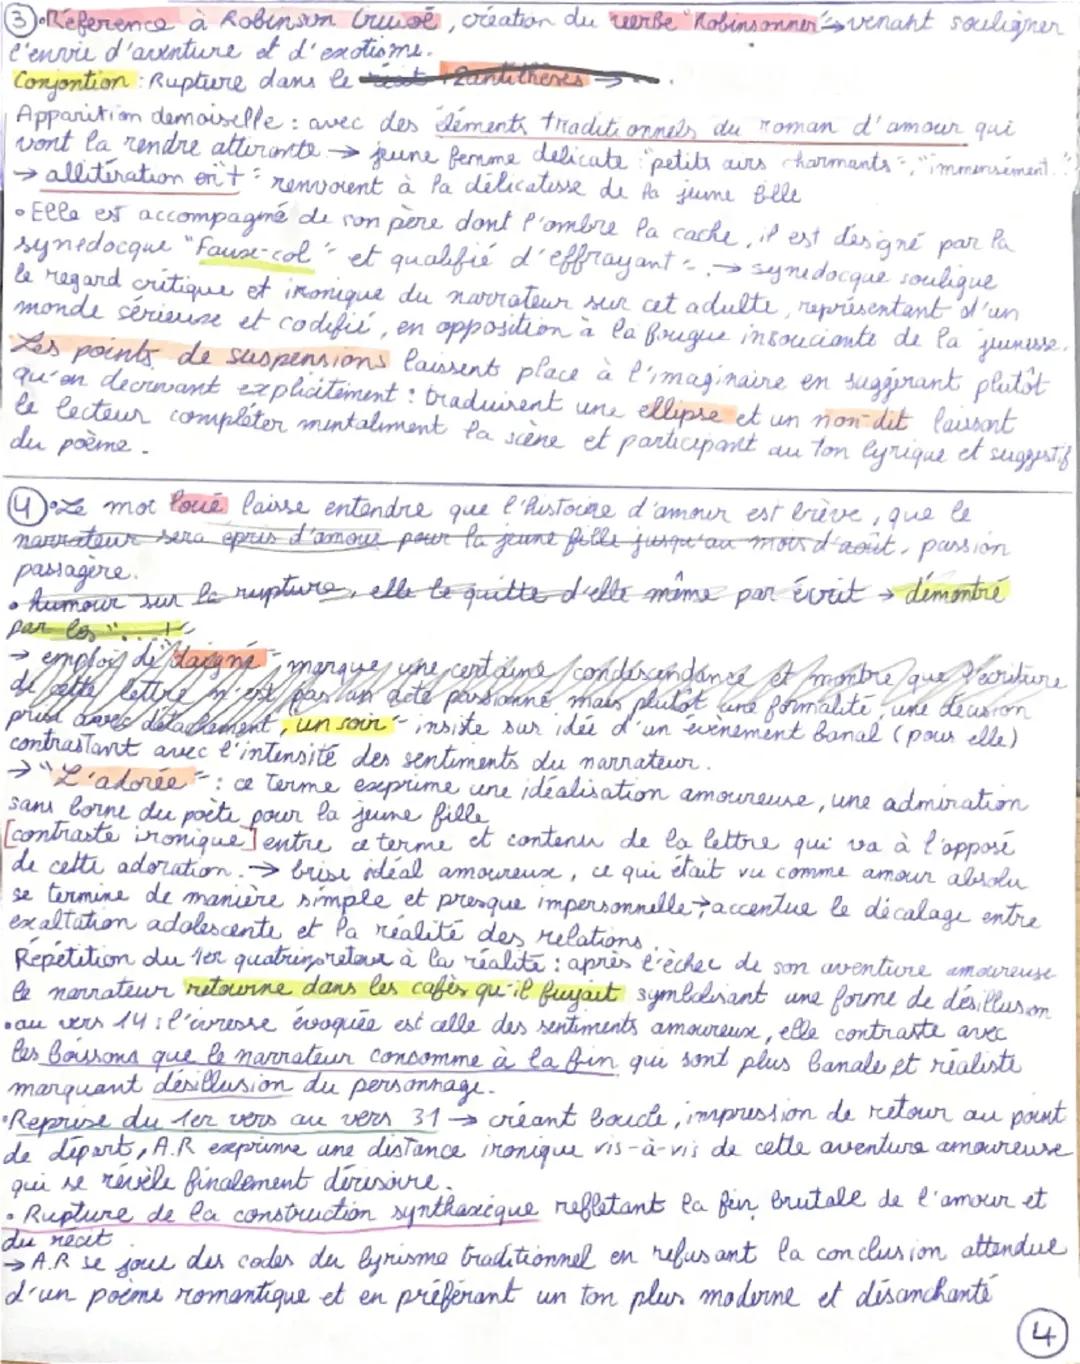 ③ • Réference à Robinson Crusoë, création du verbe "Robinsonner" → venant souligner
l'envie d'aventure et d'exotisme.
Conjontion : Rupture dans le récit : 2 antithèses →
Apparition demoiselle : avec des éléments traditionnels du roman d'amour qui
vont la rendre attirante → jeune femme delicate : "petits airs charmants", "immensément..."
→ allitération en t : renvoient à la délicatesse de la jeune fille
• Elle est accompagné de son père dont l'ombre la cache, il est désigné par la
synedocque "Faux-col" et qualifié d'effrayant → synedocque soulique
le regard critique et ironique du narrateur sur cet adulte, représentant d'un
monde sérieuse et codifié, en opposition à la fougue insouciante de la jeunesse.
Les points de suspensions laissent place à l'imaginaire en suggérant plutôt
qu'en decrivant explicitement : traduisent une ellipse et un non-dit laissant
le lecteur complèter mentalment la scène et participant au ton lyrique et suggestif
du poème.
④ • Le mot loué laisse entendre que l'histoire d'amour est brève, que le
narrateur sera épris d'amour pour la jeune fille jusqu'au mois d'août, passion
passagère.
• humour sur la rupture, elle le quitte d'elle même par écrit → démontré
par les "...!"
→ emploi de "daigné" marque une certaine condescendance et montre que l'écriture
de cette lettre n'est pas un acte passionné mais plutôt une formalité, une décision
prise avec détachement, "un soir" insiste sur idée d'un évènement banal (pour elle)
contrastant avec l'intensité des sentiments du narrateur.
→ "L'adorée" : ce terme exprime une idéalisation amoureuse, une admiration
sans borne du poète pour la jeune fille
[contraste ironique] entre ce terme et contenu de la lettre qui va à l'opposé
de cette adoration. → brise idéal amoureux, ce qui était vu comme amour absolu
se termine de manière simple et presque impersonnelle → accentue le décalage entre
exaltation adolescente et la réalité des relations.
Répétition du 1er quatrin, retour à la réalité : après l'échec de son aventure amoureuse
le narrateur retourne dans les cafés qu'il fuyait symbolisant une forme de désillusion
• au vers 14 : l'ivresse évoquée est celle des sentiments amoureux, elle contraste avec
les boissons que le narrateur concomme à la fin qui sont plus banale et réaliste
marquant désillusion du personnage.
• Reprise du 1er vers au vers 31 → créant boucle, impression de retour au point
de départ, A.R exprime une distance ironique vis-à-vis de cette aventure amoureuse
qui se révèle finalement dérisoire.
• Rupture de la construction synthaxique reflétant la fin brutale de l'amour et
du récit
→ A.R se joue des codes du lyrisme traditionnel en refusant la conclusion attendue
d'un poème romantique et en préférant un ton plus moderne et désanchanté
④